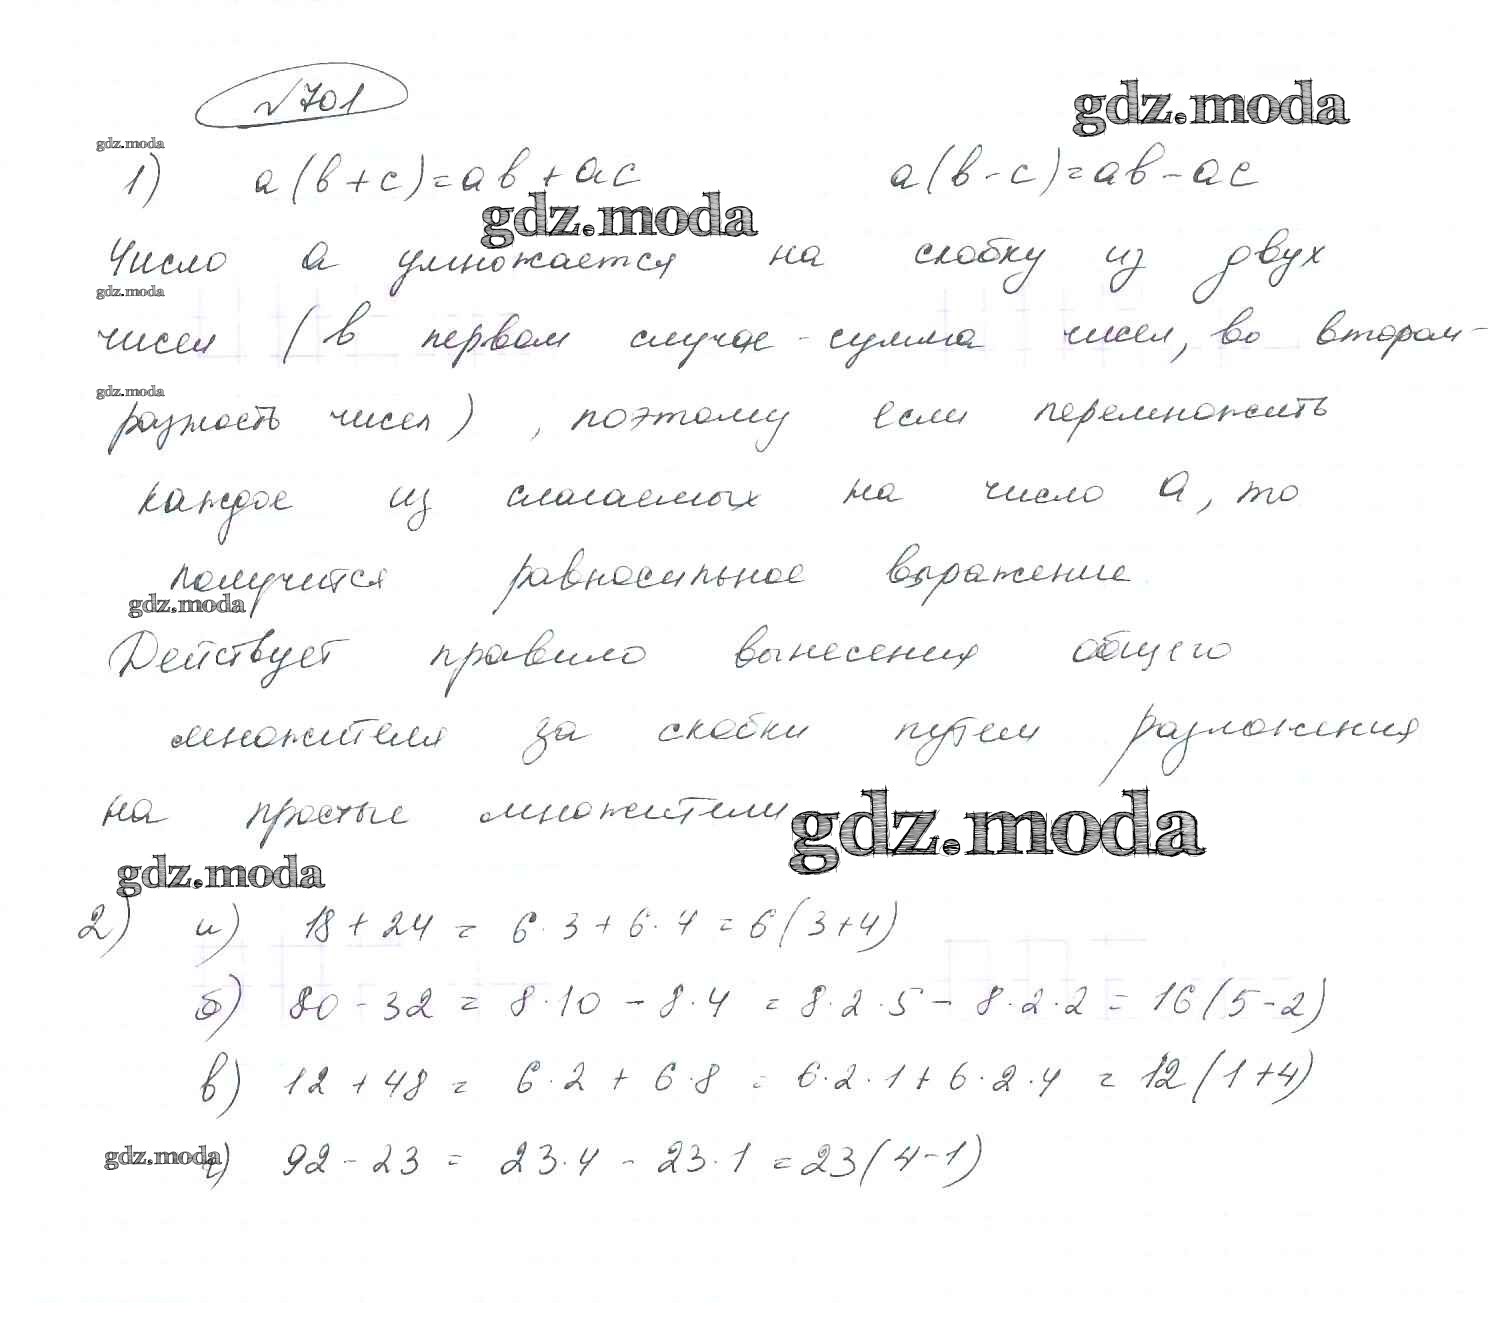 √701
gdz.moda
gdz.moda
1) a(b+c)=ab+ac a(b-c)=ab-ac
gdz.moda
Число a умножается на скобку из двух
gdz.moda
чисел (в первом случае - сумма чисел, во втором-
gdz.moda
разность чисел), поэтому если перемножить
каждое из слагаемых на число a, то
получится равносильное выражение
gdz.moda
Действует правило вынесения общего
множителя за скобки путем разложения
на простые множители
gdz.moda
gdz.moda
2) а) 18+24 = 6·3+6·4 = 6(3+4)
б) 80-32 = 8·10 - 8·4 = 8·2·5 - 8·2·2 = 16(5-2)
в) 12+48 = 6·2 + 6·8 = 6·2·1+6·2·4 = 12(1+4)
gdz.moda
г) 92-23 = 23·4 - 23·1 = 23(4-1)